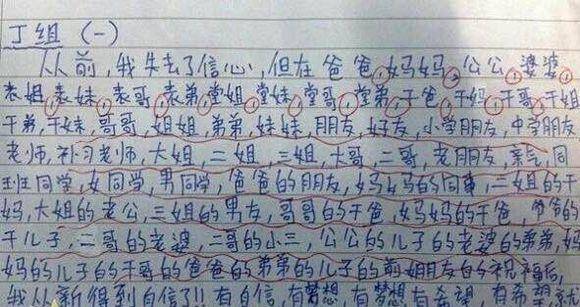 丁组（一）
从前，我失去了信心，但在爸爸，妈妈，公公，婆婆，
表姐，表妹，表哥，表弟，堂姐，堂妹，堂哥，堂弟，干爸，干妈，干哥，干姐
干弟，干妹，哥哥，姐姐，弟弟，妹妹，朋友，好友，小学朋友，中学朋友
老师，补习老师，大姐，二姐，三姐，大哥，二哥，老朋友，亲戚，同
班同学，女同学，男同学，爸爸的朋友，妈妈的同事，三姐的干
妈，大姐的老公，三姐的男友，哥哥的干爸，妈妈的干爸，爷爷的
干儿子，二哥的老婆，二哥的小三，公公的儿子的老婆的弟弟，妈
妈的儿子的干哥的爸爸的弟弟的儿子的前姐朋友的祝福后，
我从新得到自信了!! 有自信，有梦想，有梦想有希望，有希望